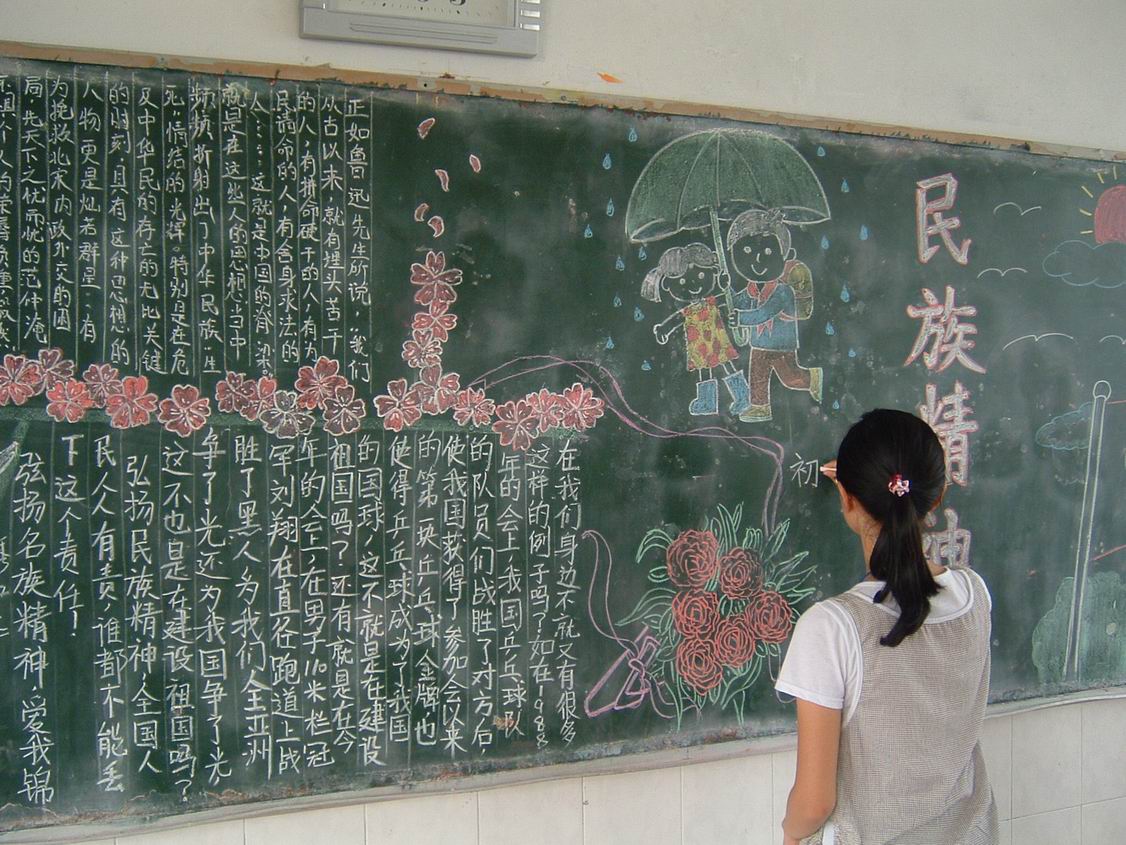 民族精神
初
正如鲁迅先生所说，“我们
从古以来，就有埋头苦干
的人，有拼命硬干的人，有为
民请命的人，有舍身求法的
人……这就是中国的脊梁。”
就是在这些人的思想当中
频频折射出了中华民族生
死情结的光辉。特别是在危
及中华民的存亡的尤比关键
的时刻，具有这种思想的
人物更是灿若群星，有
为挽救北宋内政外交的困
局，先天下之忧而忧的范仲淹
个人的荣辱
在我们身边不就又有很多
这样的例子吗？如在1988
年的会上我国乒乓球队
的队员们战胜了对方后
使我国获得了参加会以来
的第一块乒乓球金牌也
使得乒乓球成为了我国
的国球，这不就是在建设
祖国吗？还有就是在今
年的会上在男子10米栏冠
军刘翔在直径跑道上战
胜了黑人为我们全亚洲
争了光还为我国争了光
这不也是在建设祖国吗？
弘扬民族精神，全国人
民人人有责，谁都不能丢
下这个责任！
弦扬名族精神，爱我锦